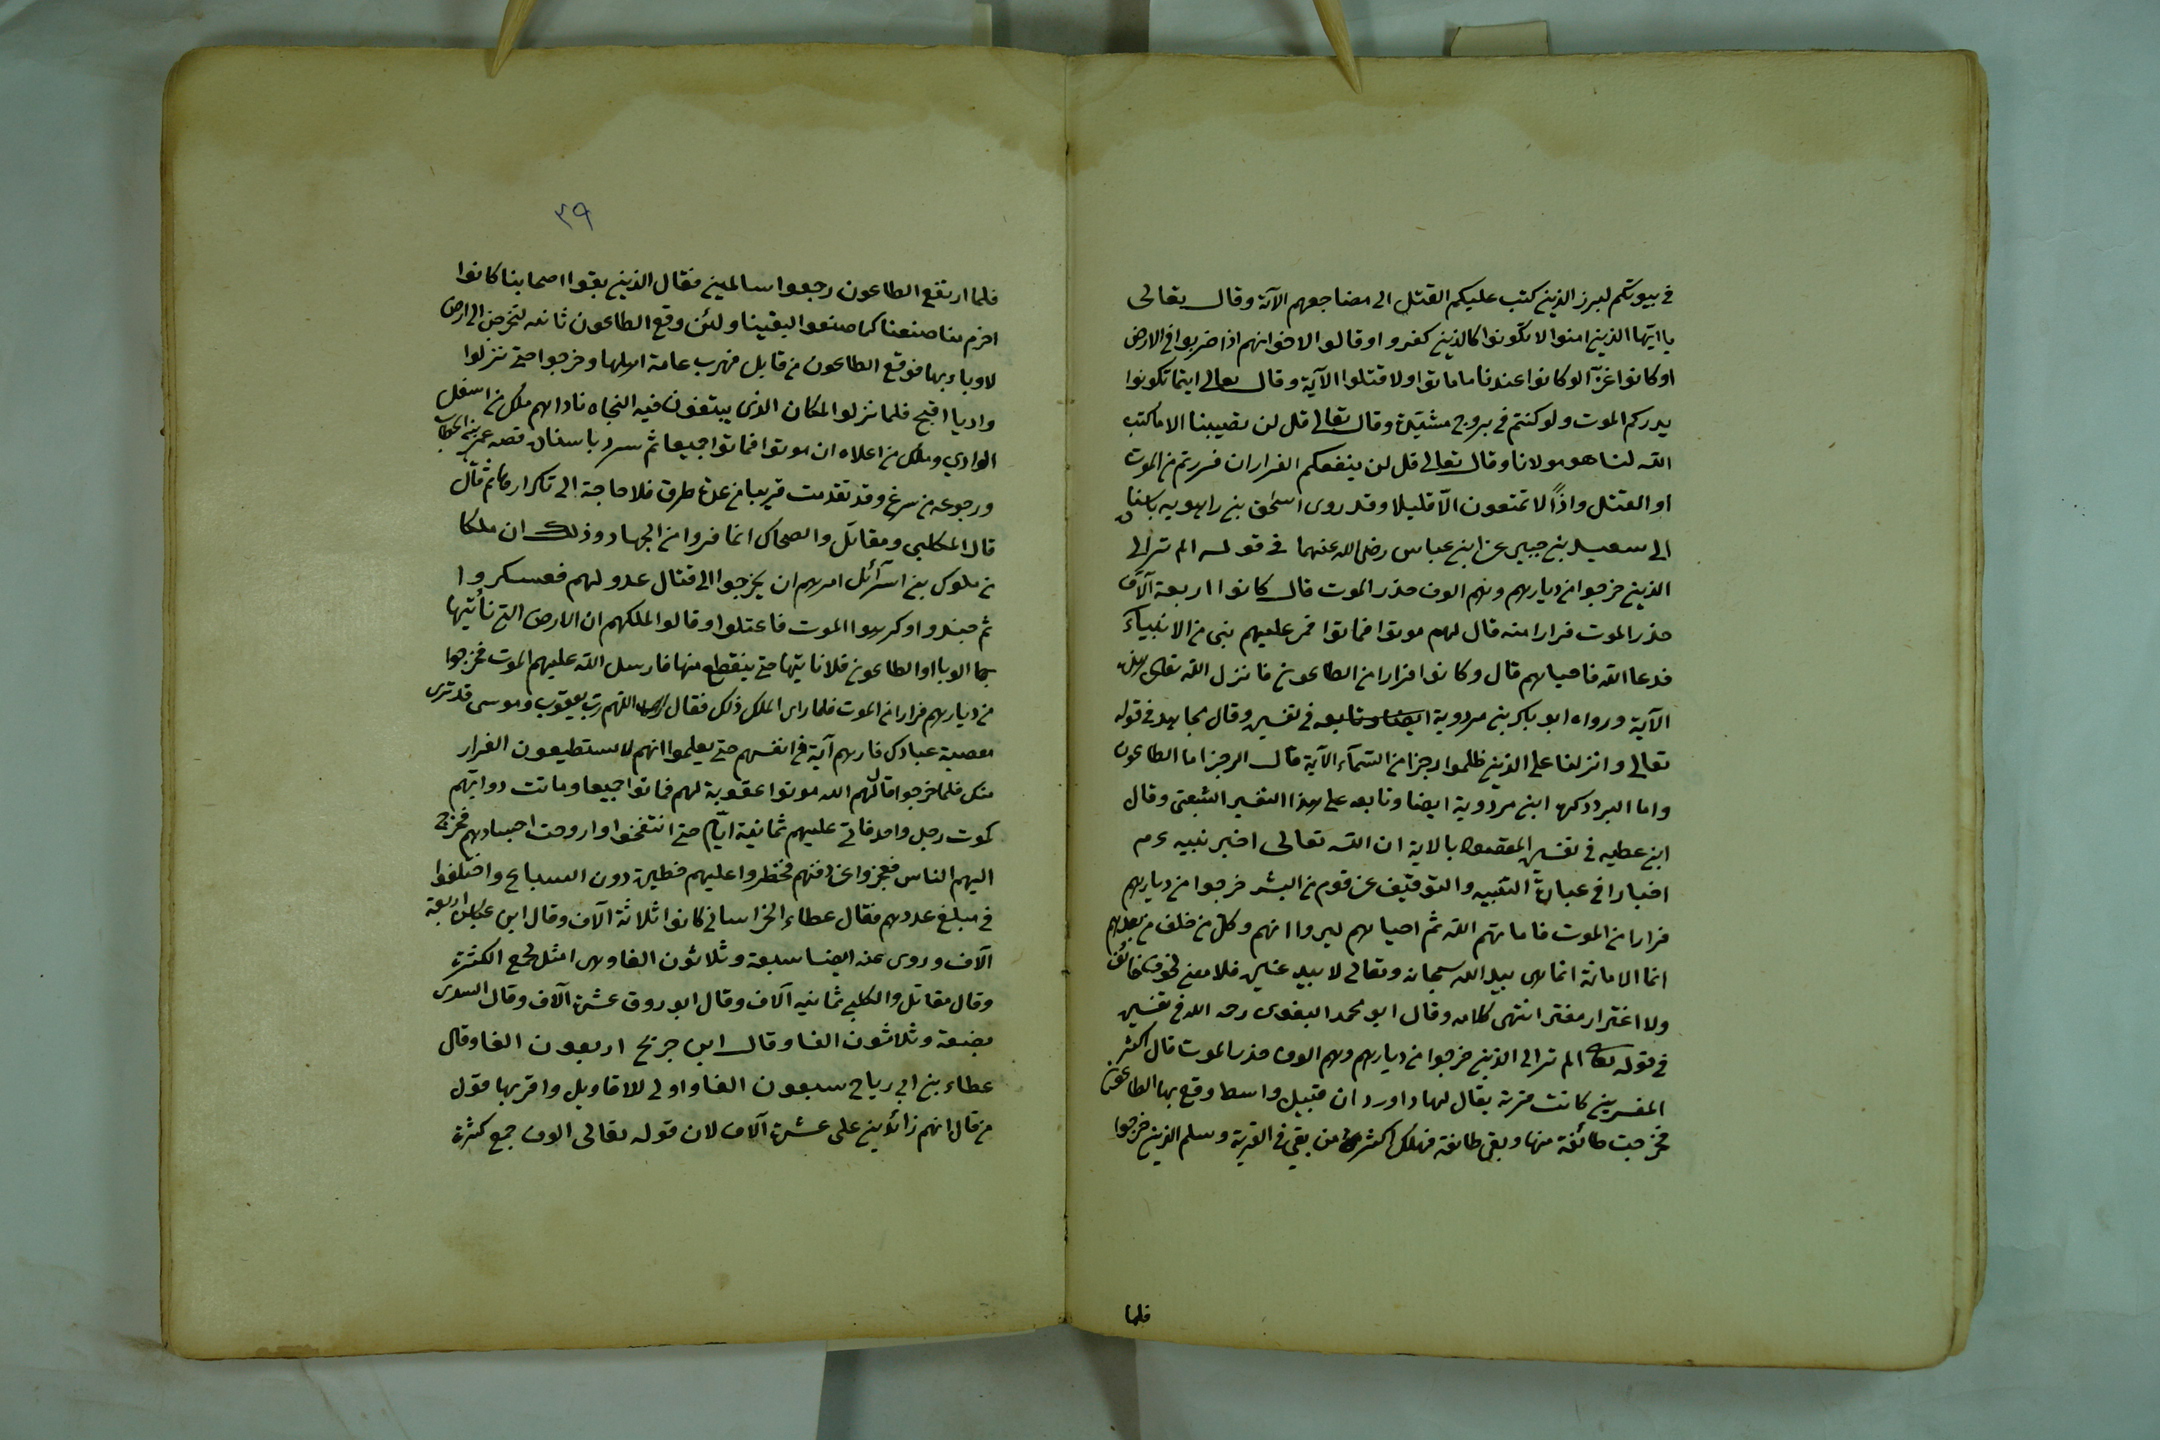 في بيوتكم لبرز الذين كتب عليكم القتل الى مضاجعهم الآية وقال تعالى
يا ايها الذين امنوا لا تكونوا كالذين كفروا وقالوا لاخوانهم اذا ضربوا في الارض
او كانوا غزّا لو كانوا عندنا ما ماتوا ولا قتلوا الآية وقال تعالى اينما تكونوا
يدرككم الموت ولو كنتم في بروج مشيّدة وقال تعالى قل لن يصيبنا الا ما كتب
الله لنا هو مولانا وقال تعالى قل لن ينفعكم الفرار ان فررتم من الموت
او القتل واذًا لا تمتعون الّا قليلا وقد روى اسحق بن راهويه باسناده
الى سعيد بن جبير عن ابن عباس رضى الله عنهما في قوله الم تر الى
الذين خرجوا من ديارهم وهم الوف حذر الموت قال كانوا اربعة آلاف
حذر الموت فرارا منه قال لهم موتوا فماتوا فمر عليهم نبى من الانبياء
فدعا الله فاحياهم قال وكانوا فرارا من الطاعون فانزل الله تعالى هذه
الآية ورواه ابو بكر بن مردوية ايضا وتابعه في تفسيره وقال مجاهد في قوله
تعالى وانزلنا على الذين ظلموا رجزا من السّماء الآية قال الرجز اما الطاعون
واما البرد ذكره ابن مردوية ايضا وتابعه على هذا التفسير الشعبى وقال
ابن عطيه في تفسيره المقصود بالاية ان الله تعالى اخبر نبيه ءم
اخبارا في عبارة التنبيه والتوقيف عن قوم من البشر خرجوا من ديارهم
فرارا من الموت فاماتهم الله ثم احياهم ليروا انهم وكل من خلف من بعدهم
انما الاماتة انما هى بيد الله سبحانه وتعالى لا بيد غيره فلا معنى لخوف خائف
ولا اغترار مغتر انتهى كلامه وقال ابو محمد البغوى رحمه الله في تفسيره
في قوله تعالى الم تر الى الذين خرجوا من ديارهم وهم الوف حذر الموت قال اكثر
المفسرين كانت قرية يقال لها داوردان قبيل واسط وقع بها الطاعون
فخرجت طائفة منها وبقى طائفة فهلك اكثر من بقى في القرية وسلم الذين خرجوا
فلما
٣٩
فلما ارتفع الطاعون رجعوا سالمين فقال الذين بقوا اصحابنا كانوا
احزم منا صنعنا كما صنعوا لبقينا ولئن وقع الطاعون ثانيه لنخرجن الى ارض
لا وباء بها فوقع الطاعون من قابل فهرب عامة اهلها وخرجوا حتى نزلوا
واديا افيح فلما نزلوا المكان الذى يبتغون فيه النجاه ناداهم ملك من اسفل
الوادي وملك من اعلاه ان موتوا فماتوا جميعا ثم سرد باسناده قصه عمر بن الخطاب
ورجوعه من سرغ وقد تقدمت قريبا من عدة طرق فلا حاجة الى تكرارها ثم قال
قال الكلبي ومقاتل والضحاك انما فروا من الجهاد وذلك ان ملكا
من ملوك بنى اسرآئل امرهم ان يخرجوا الى قتال عدولهم فعسكروا
ثم جبنوا وكرهوا الموت فاعتلوا وقالوا لملكهم ان الارض التى نأتيها
بها الوبا او الطاعون فلا ناتيها حتى ينقطع منها فارسل الله عليهم الموت فخرجوا
من ديارهم فرارا من الموت فلما راى الملك ذلك فقال اللهم رب يعقوب وموسى قد ترى
معصية عبادك فارهم آية في انفسهم حتى يعلموا انهم لا يستطيعون الفرار
منك فلما خرجوا قال لهم الله موتوا عقوبة لهم فماتوا جميعا وماتت دوابهم
كموت رجل واحد فاتى عليهم ثمانية ايّام حتى انتفخوا واروحت اجسادهم فخرج
اليهم الناس فعجزوا عن دفنهم فحظروا عليهم حظيرة دون السباع واختلفوا
في مبلغ عددهم فقال عطاء الخراسانى كانوا ثلاثة آلاف وقال ابن عباس اربعة
آلاف وروى عنه ايضا سبعة وثلاثون الفا وهى امثل لجمع الكثرة
وقال مقاتل والكلبى ثمانيه آلاف وقال ابو روق عشرة آلاف وقال السدى
بضعة وثلاثون الفا وقال ابن جريج اربعون الفا وقال
عطاء بن ابي رباح سبعون الفا واولى الاقاويل واقربها قول
من قال انهم زائدين على عشرة آلاف لان قوله تعالى الوف جمع كثرة